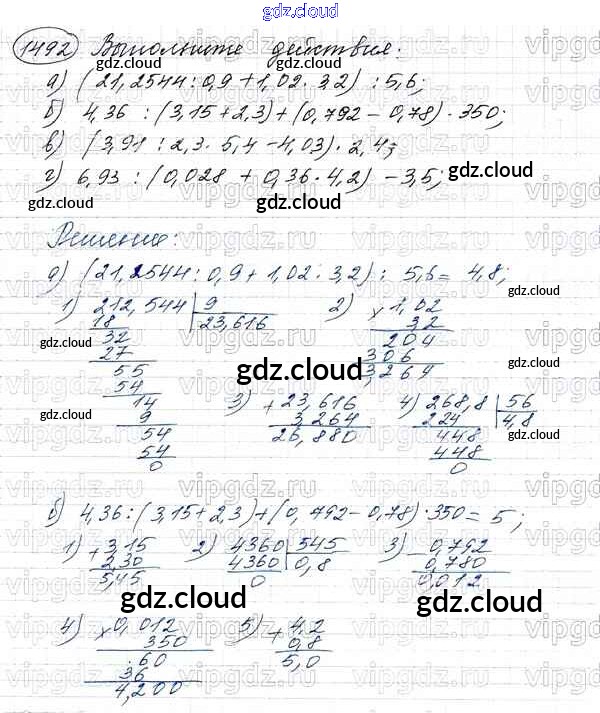 gdz.cloud
1492 Выполните действия:
а) (21,2544 : 0,9 + 1,02 · 3,2) : 5,6;
б) 4,36 : (3,15 + 2,3) + (0,792 - 0,78) · 350;
в) (3,91 : 2,3 · 5,4 - 4,03) · 2,4;
г) 6,93 : (0,028 + 0,36 · 4,2) - 3,5;
gdz.cloud gdz.cloud gdz.cloud
Решение:
а) (21,2544 : 0,9 + 1,02 · 3,2) : 5,6 = 4,8;
gdz.cloud gdz.cloud
1) 212,544 | 9 2) × 1,02
18 23,616 32
32 204
27 306
55 3,264
54
14 3) + 23,616 4) 268,8 | 56
9 3,264 224 4,8
54 26,880 448
54 448
0 0
gdz.cloud gdz.cloud gdz.cloud gdz.cloud
б) 4,36 : (3,15 + 2,3) + (0,792 - 0,78) · 350 = 5;
1) + 3,15 2) 4360 | 545 3) - 0,792
2,30 4360 0,8 0,780
5,45 0 0,012
gdz.cloud gdz.cloud
4) × 0,012 5) + 4,2
350 0,8
60 5,0
36
4,200
gdz.cloud gdz.cloud